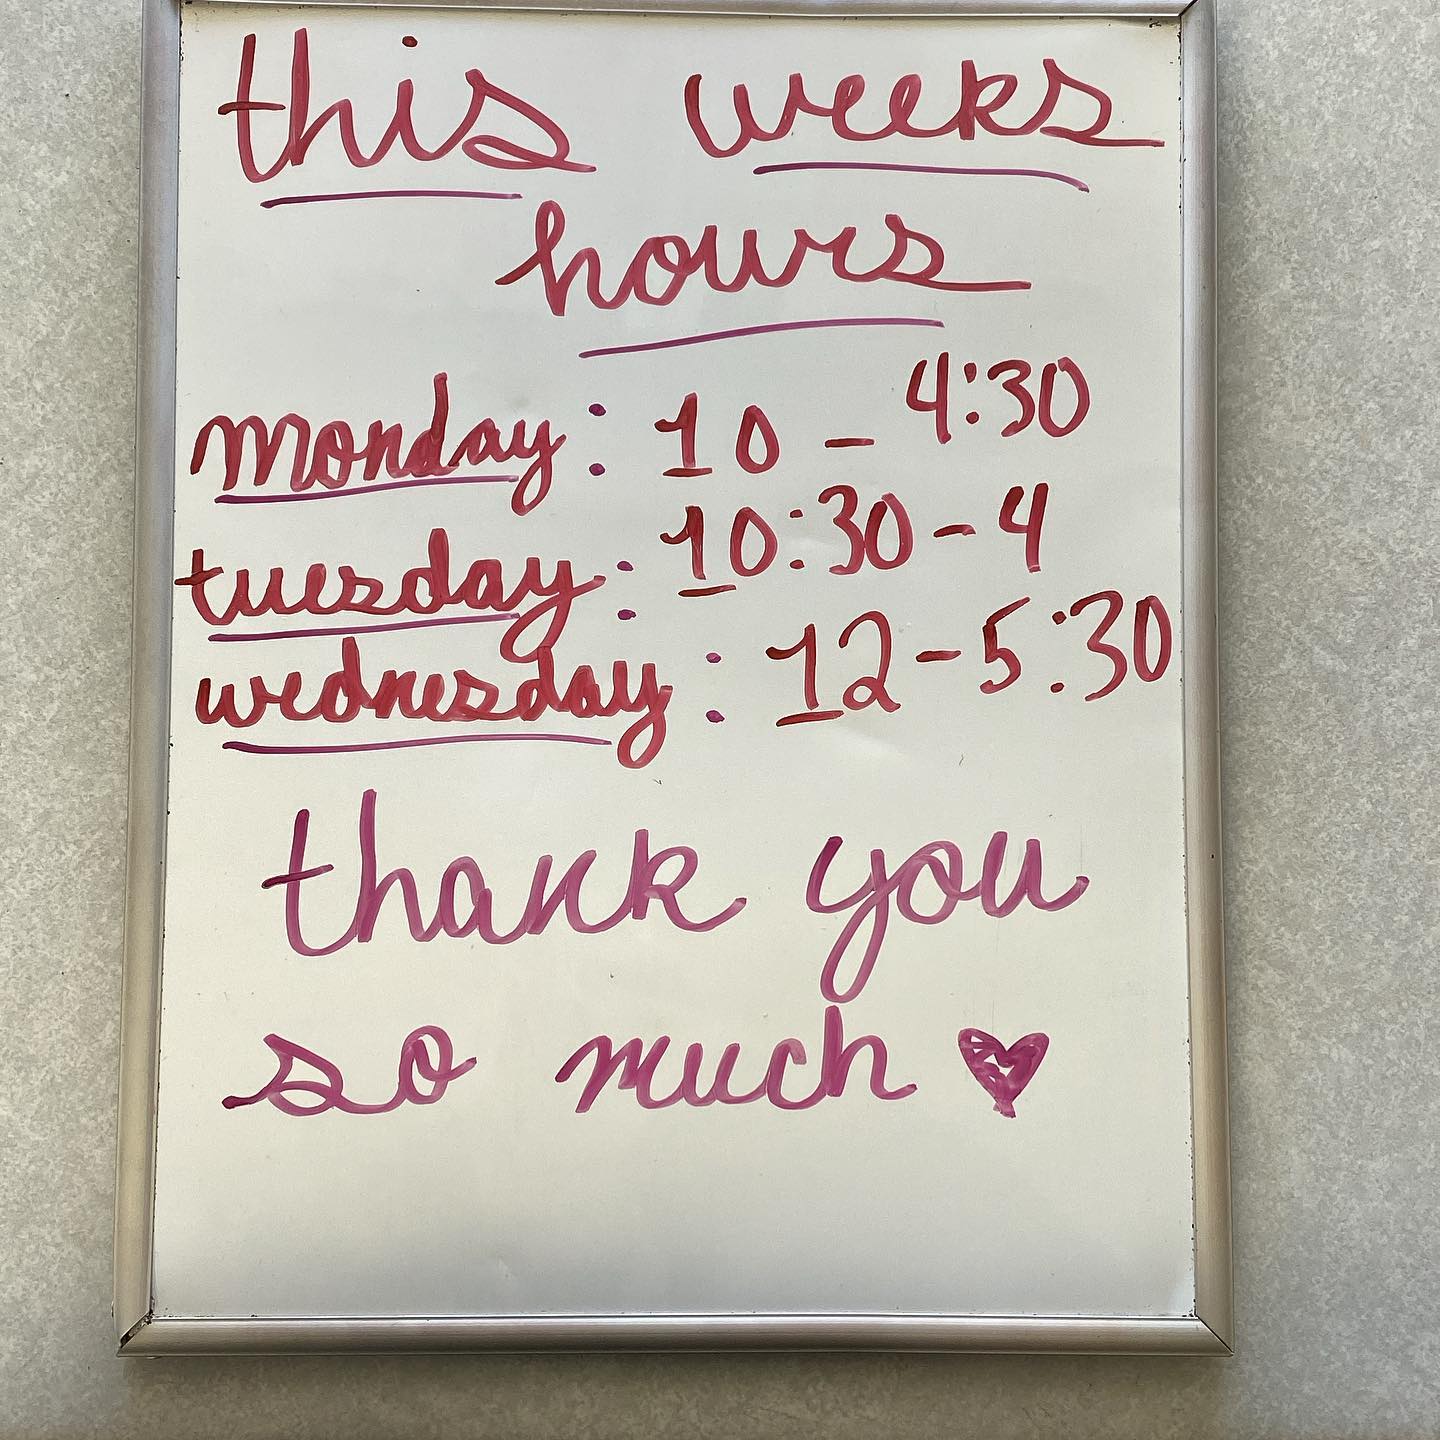 this weeks
hours
monday: 10 - 4:30
tuesday: 10:30 - 4
wednesday: 12 - 5:30
thank you
so much ♥